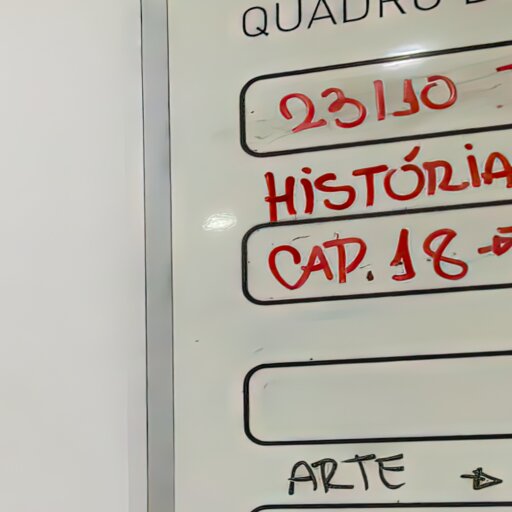 QUADRO
23/10
HISTÓRIA
CAP. 18 →
ARTE →